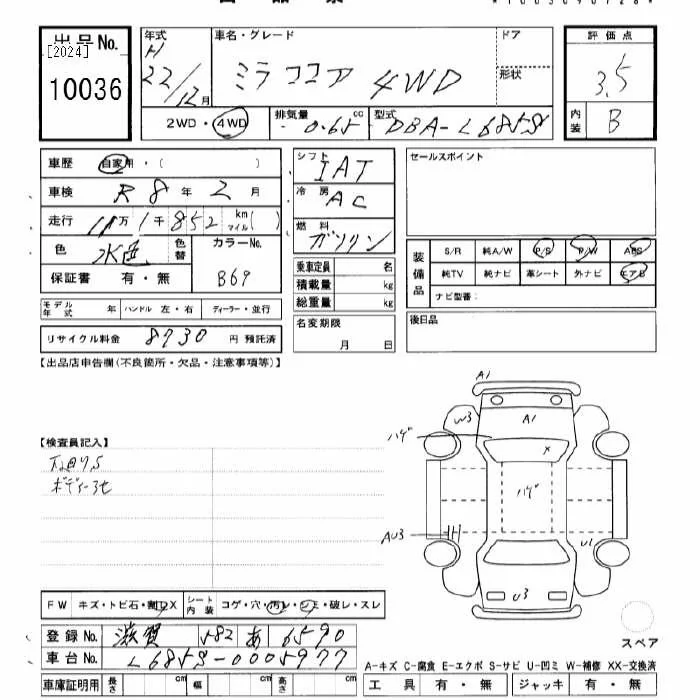 出品No.
[2024]
10036
年式 H 22/12月
車名・グレード ミラココア 4WD
ドア
形状
2WD・4WD
排気量 0.65 cc
型式 DBA-L685S
評価点 3.5
内装 B
車歴 自家用・( )
車検 R8年2月
走行 11万1千852 km マイル( )
色 水色 色替 カラーNo. B69
保証書 有・無
モデル年式 年 ハンドル 左・右 ディーラー・並行
リサイクル料金 8730円 預託済
シフト IAT
冷房 AC
燃料 ガソリン
乗車定員 名
積載量 kg
総重量 kg
名変期限 月 日
セールスポイント
装備品 S/R 純A/W P/S P/W ABS
純TV 純ナビ 革シート 外ナビ エアB
ナビ型番:
後日品
【出品店申告欄(不良箇所・欠品・注意事項等)】
【検査員記入】
A1
W3
A1
ハゲ
X
ハゲ
AU3
U1
U3
スペア
FW キズ・トビ石・割ワX シート内装 コゲ・穴・汚レ・シミ・破レ・スレ
登録No. 滋賀 582 あ 6590
車台No. L685S-0005977
車庫証明用 長さ cm 幅 cm 高さ cm
A-キズ C-腐食 E-エクボ S-サビ U-凹ミ W-補修 XX-交換済
工具 有・無 ジャッキ 有・無